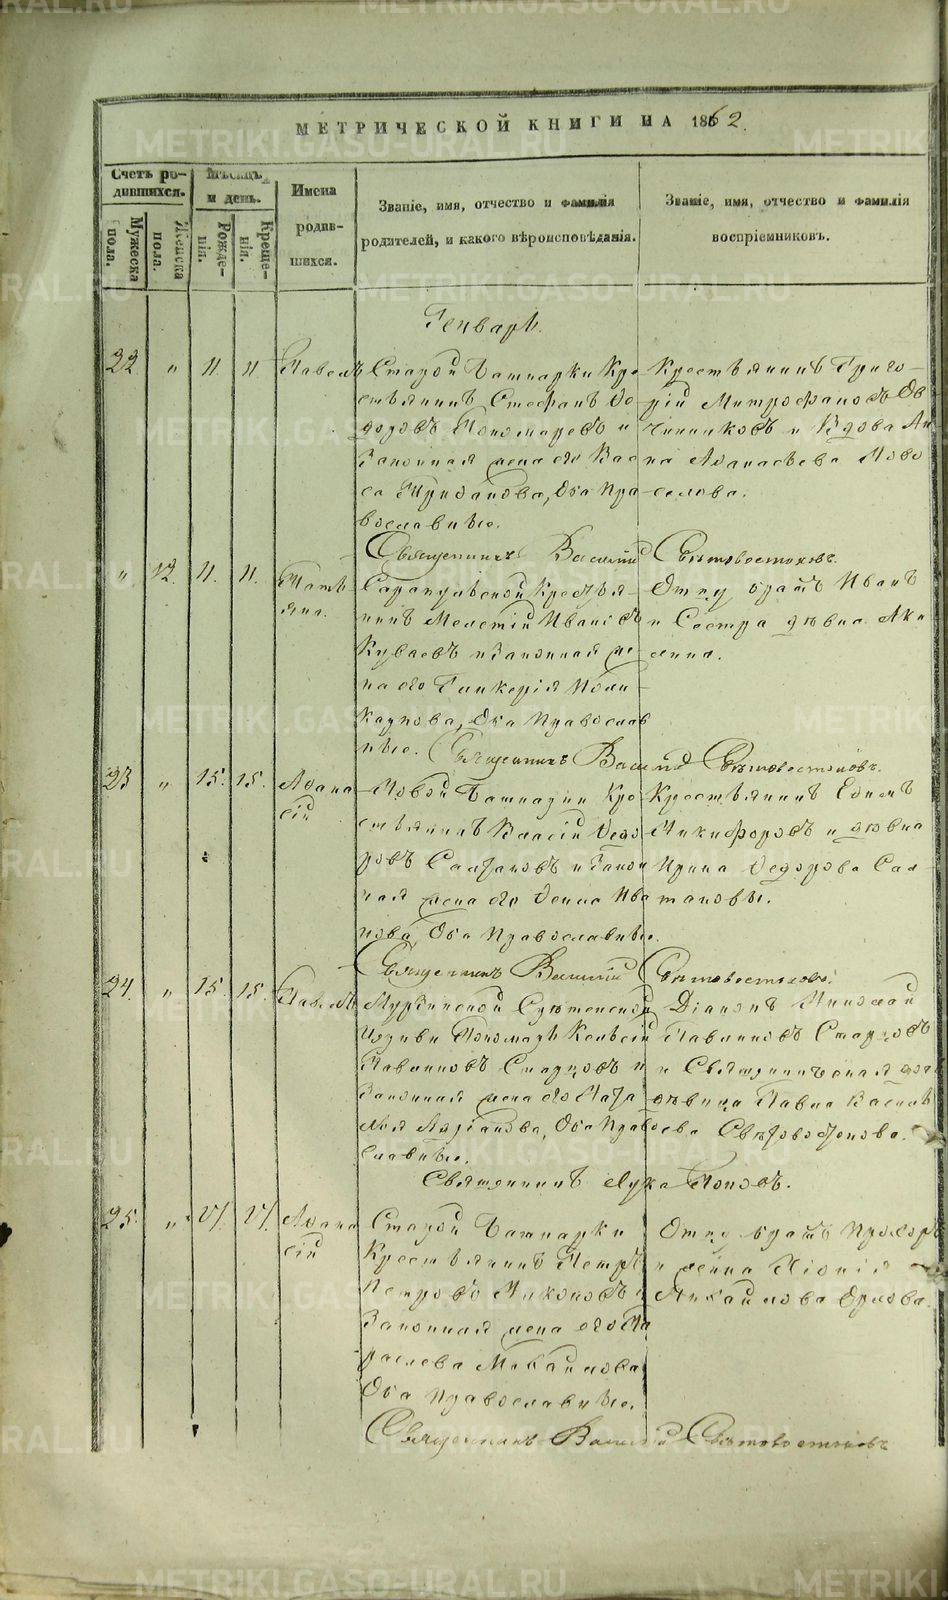 МЕТРИЧЕСКОЙ КНИГИ НА 1862.
Счетъ ро-
дившихся.
Мужеска
пола.
Женска
пола.
Мѣсяцъ
и день.
Рожде-
нія.
Креще-
нія.
Имена
родив-
шихся.
Званіе, имя, отчество и фамилія
родителей, и какого вѣроисповѣданія.
Званіе, имя, отчество и фамилія
воспріемниковъ.
Генварь.
22 " 11 11 Павелъ
Старой Кре-
стьянинъ Стефанъ Ѳе-
доровъ Пономаревъ и
Законная жена его Васи
са Оба Пра
вославные.
Крестьянинъ Григо-
рій Митрофановъ Ов
чинниковъ и Вдова Ан
на Аѳанасьева Ново
селова.
Священникъ Василій Свѣтовостоковъ.
" 12. 11. 11. Татья
яна.
Крестья-
нинъ Мелетій Ивановъ
и Законная же
на его Гликерія Поли
карпова, Оба Православ
ные.
Отцу братъ Иванъ
и Сестра дѣвица Аки
лина.
Священникъ Василій Свѣтовостоковъ.
23 " 15. 15. Аѳана
сій
Новой Кре
стьянинъ Власій Ѳедо
ровъ Салтановъ и Закон
ная жена его Ива
нова, Оба Православные.
Крестьянинъ Ефимъ
Никифоровъ и дѣвица
Ирина Ѳедорова Сал-
тановы.
Священникъ Василій Свѣтовостоковъ.
24. " 15. 15. Павелъ
Мурзинской Срѣтенской
Церкви Пономарь
Павлиновъ Старцовъ и
Законная жена его Ната
лья Оба Право
славные.
Діаконъ Николай
Павлиновъ Старцовъ
и Священническая доч
дѣвица Павла Василь
ева Свѣтовостокова.
Священникъ Лука Поповъ.
25. " 17. 17. Аѳана
сій
Старой
Крестьянинъ Петръ
Петровъ Никоновъ и
Законная жена его Па
раскева Михайлова
Оба Православные.
Отцу братъ Прохоръ
и жена Хіонія
Михайлова Орлова.
Священникъ Василій Свѣтовостоковъ
METRIKI.GASO-URAL.RU